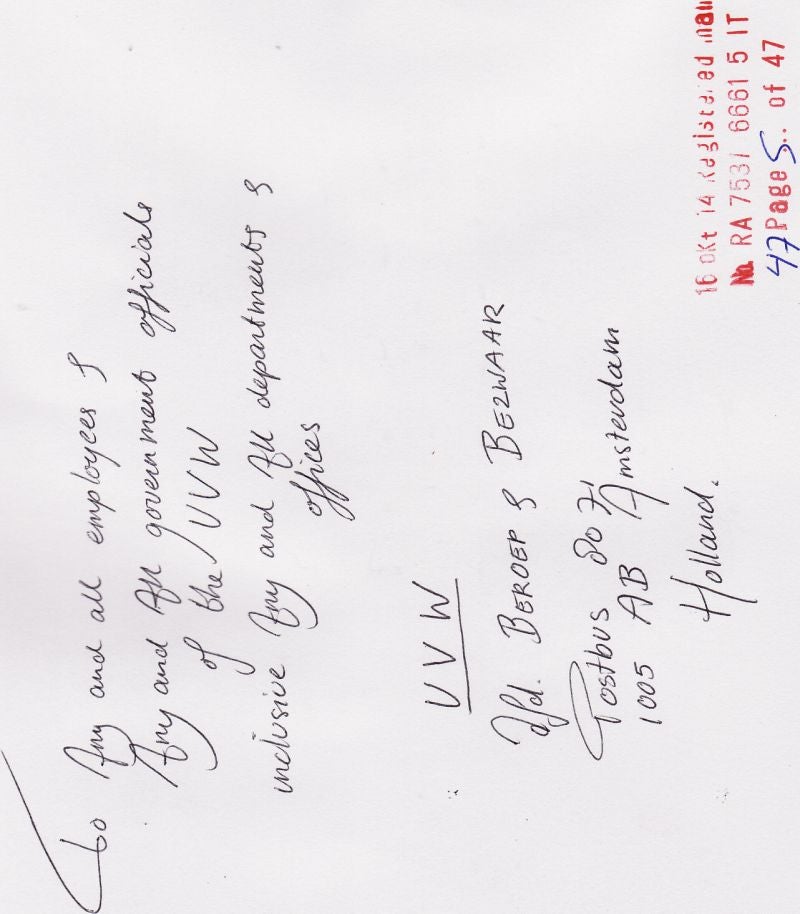 To Any and all employees &
Any and All government officials
of the UVW
inclusive Any and All departments &
offices
UVW
Afd. BEROEP & BEZWAAR
Postbus 8071
1005 AB Amsterdam
Holland.
16 okt 14 Registered mail
No. RA 7531 6661 5 IT
47 Page 5... of 47